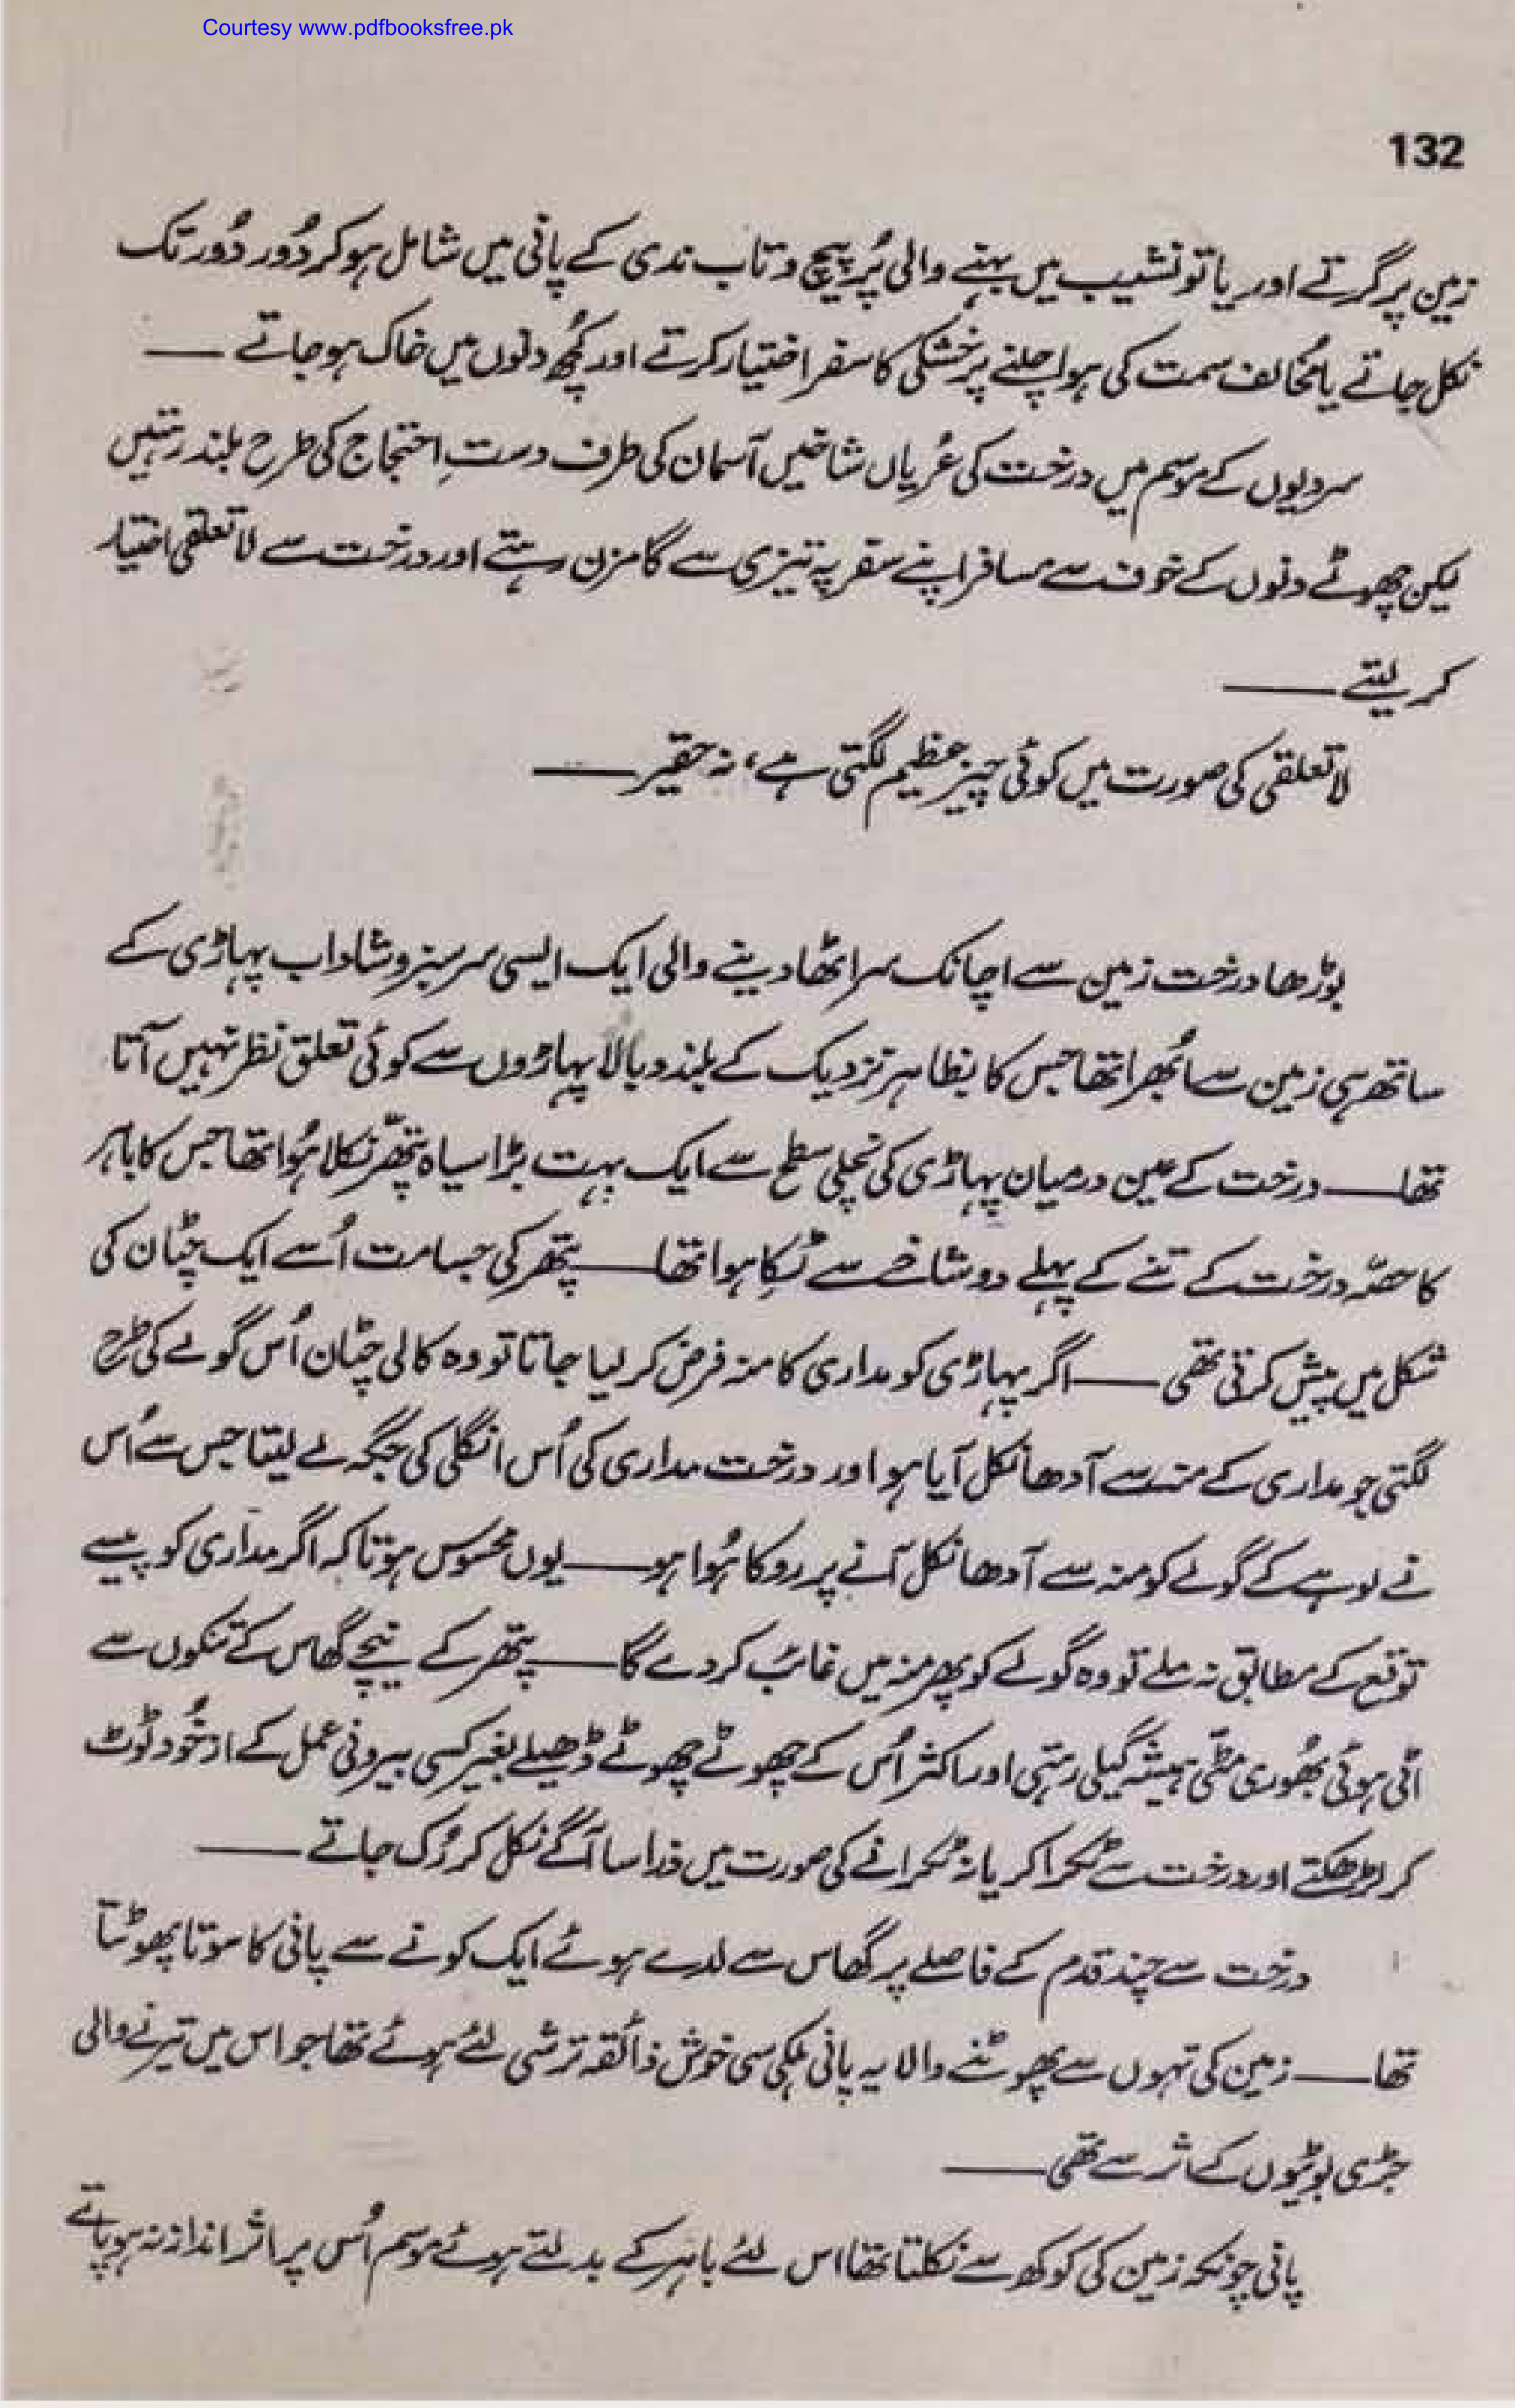 Courtesy www.pdfbooksfree.pk
132
زمین پر گرتے اور یا تو نشیب میں بہنے والی پُر پیچ و تاب ندی کے پانی میں شامل ہو کر دُور دُور تک
نکل جاتے یا مُخالف سمت کی ہوا چلنے پر خشکی کا سفر اختیار کرتے اور کُچھ دنوں میں خاک ہو جاتے ——
سردیوں کے موسم میں درخت کی عُریاں شاخیں آسمان کی طرف دستِ احتجاج کی طرح بلند رہتیں
لیکن چھوٹے دنوں کے خوف سے مسافر اپنے سفر پہ تیزی سے گامزن رہتے اور درخت سے لاتعلقی اختیار
کر لیتے ——
لاتعلقی کی صورت میں کوئی چیز عظیم لگتی ہے، نہ حقیر ——
بوڑھا درخت زمین سے اچانک سر اٹھا دینے والی ایک ایسی سرسبز و شاداب پہاڑی کے
ساتھ ہی زمین سے اُبھرا تھا جس کا بظاہر نزدیک کے بلند و بالا پہاڑوں سے کوئی تعلق نظر نہیں آتا
تھا —— درخت کے عین درمیان پہاڑی کی نچلی سطح سے ایک بہت بڑا سیاہ پتھّر نکلا ہُوا تھا جس کا باہر
کا حصّہ درخت کے تنے کے پہلے دو شاخے سے ٹِکا ہوا تھا —— پتھر کی جسامت اُسے ایک چٹان کی
شکل میں پیش کرتی تھی —— اگر پہاڑی کو مداری کا منہ فرض کر لیا جاتا تو وہ کالی چٹان اُس گولے کی طرح
لگتی جو مداری کے منہ سے آدھا نکل آیا ہو اور درخت مداری کی اُس انگلی کی جگہ لے لیتا جس سے اُس
نے لوہے کے گولے کو منہ سے آدھا نکل آنے پر روکا ہُوا ہو —— یوں محسوس ہوتا کہ اگر مداری کو پیسے
توقع کے مطابق نہ ملے تو وہ گولے کو پھر منہ میں غائب کر دے گا —— پتھر کے نیچے گھاس کے تنکوں سے
اٹی ہوئی بھُوری مٹّی ہمیشہ گیلی رہتی اور اکثر اُس کے چھوٹے چھوٹے ڈھیلے بغیر کسی بیرونی عمل کے از خُود ٹوٹ
کر لڑھکتے اور درخت سے ٹکرا کر یا نہ ٹکرانے کی صورت میں ذرا سا آگے نکل کر رُک جاتے ——
درخت سے چند قدم کے فاصلے پر گھاس سے لدے ہوئے ایک کونے سے پانی کا سوتا پھوٹتا
تھا —— زمین کی تہوں سے پھوٹنے والا یہ پانی ہلکی سی خوش ذائقہ ترشی لئے ہوئے تھا جو اس میں تیرنے والی
جڑی بوٹیوں کے اثر سے تھی ——
پانی چونکہ زمین کی کوکھ سے نکلتا تھا اس لئے باہر کے بدلتے ہوئے موسم اُس پر اثر انداز نہ ہو پاتے